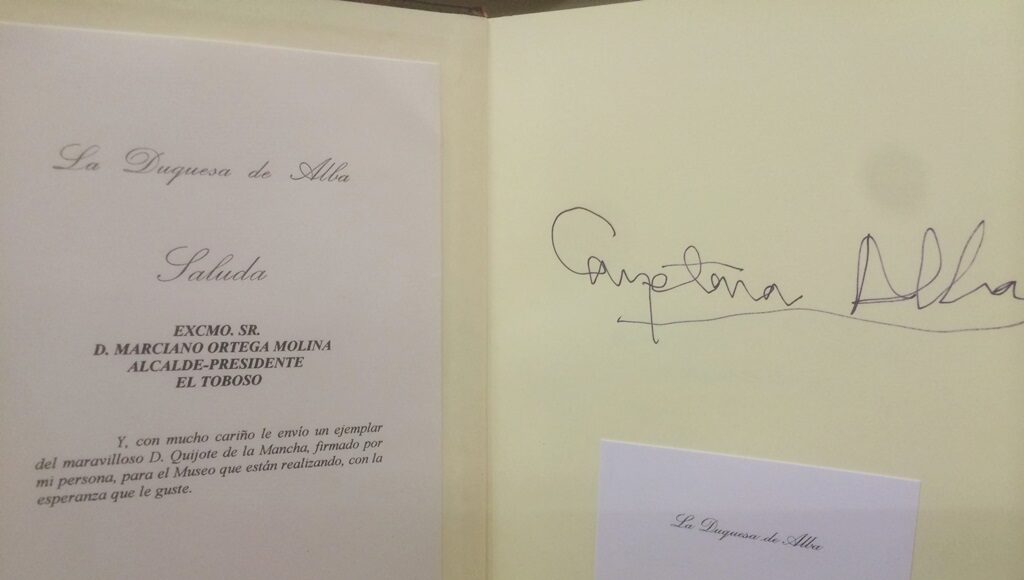 La Duquesa de Alba
Saluda
EXCMO. SR.
D. MARCIANO ORTEGA MOLINA
ALCALDE-PRESIDENTE
EL TOBOSO
Y, con mucho cariño le envío un ejemplar
del maravilloso D. Quijote de la Mancha, firmado por
mi persona, para el Museo que están realizando, con la
esperanza que le guste.
Cayetana Alba
La Duquesa de Alba